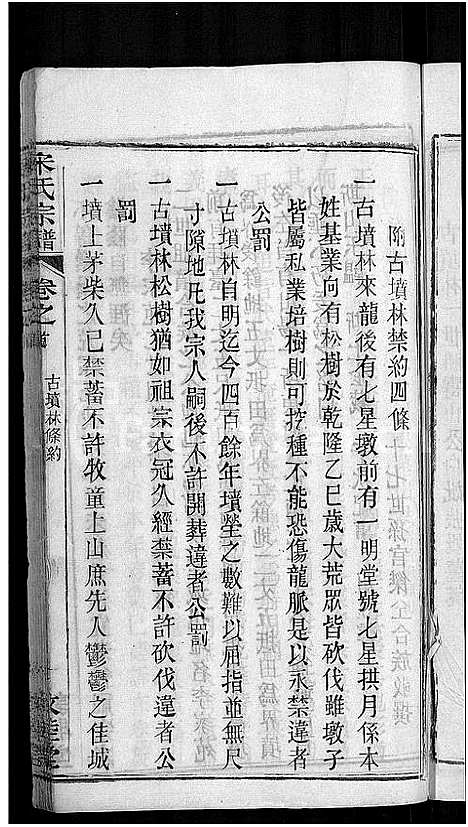 附古墳林禁約四條
一古墳林來龍後有七星墩前有一明堂號七星拱月係本
姓基業向有松樹於乾隆乙巳歲大荒眾皆砍伐雖墩子
皆屬私業培樹則可挖種不能恐傷龍脈是以永禁違者
公罰
一古墳林自明迄今四百餘年墳塋之數難以屈指並無尺
寸隙地凡我宗人嗣後不許開葬違者公罰
一古墳林松樹猶如祖宗衣冠久經禁蓄不許砍伐違者公
罰
一墳上茅柴久已禁蓄不許牧童上山庶先人鬱鬱之佳城
宋氏宗譜
卷之首
古墳林條約